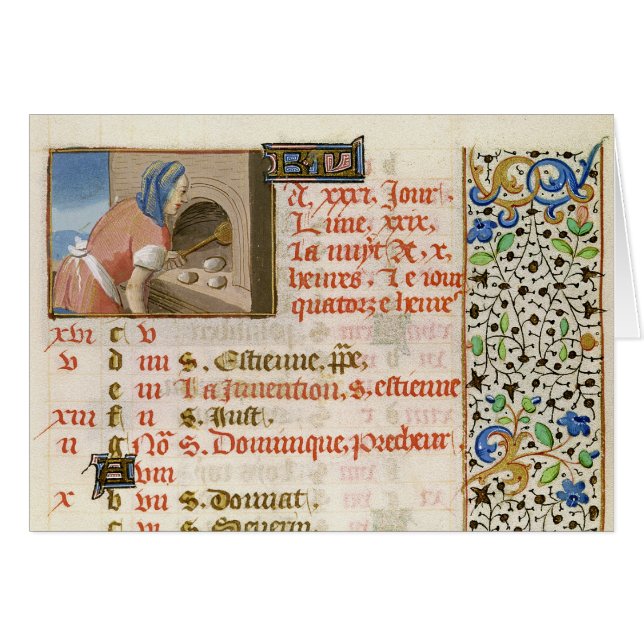 A, xxxi, Jour
Lune, xxix,
La nuyt A, x,
heures, Le iour
quatorze heure
xvi c v
v d iiii S. Estienne, ppe,
e iii La Invention, S, estienne
xiii f ii S. Just,
ii g No S. Dominique, precheur,
A viii
x b vii S. Donnat,
c vi S. Severin